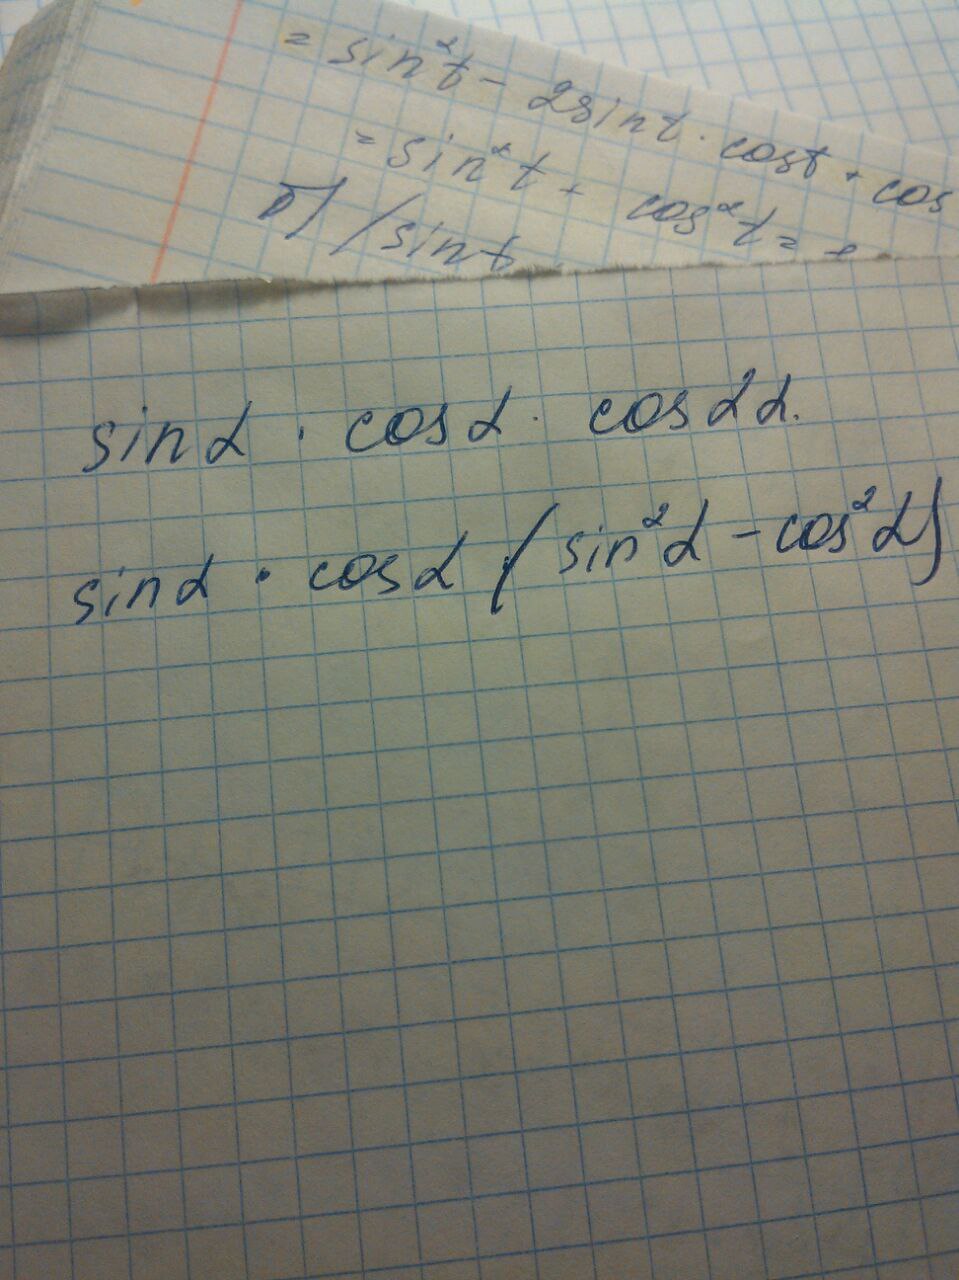 = sin²t - 2sint · cost + cos
= sin²t + cos²t =
б) /sint
sinα · cosα · cos2α.
sinα · cosα · (sin²α - cos²α)